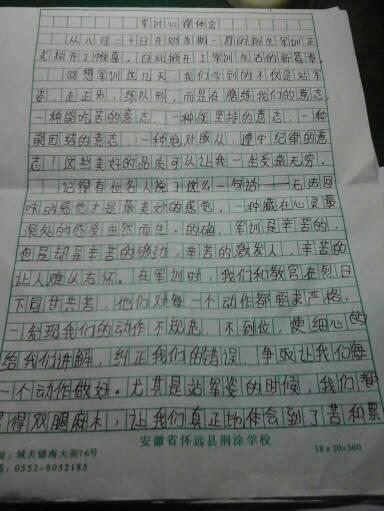 军训心得体会
从八月二十日开始为期一周的新生军训正
式拉开了帷幕。自此掀开了军训生活的新篇章。
回想军训这几天，我们学到的不仅是站军
姿，走正步，练队形，而是在磨练我们的意志。
一种能吃苦的意志，一种能坚持的意志，一种
能团结的意志，一种绝对服从，遵守纪律的意
志！这些美好的品质可以让我一生受益无穷。
记得有位名人说了这么一句话——无法回
味的感觉才是最美妙的感觉。一种藏在心灵最
深处的感受由然而生。的确，军训是辛苦的，
但是却是辛苦的够动，辛苦的激发人，辛苦的
让人难从忘怀。在军训时，我们和教官在烈日
下同甘共苦，他们对每一个动作都要求严格，
一发现我们的动作不规范，不到位，便细心的
给我们讲解，纠正我们的错误，争取让我们每
一个动作做好。尤其是站军姿的时候，我们都
觉得双腿麻木，让我们真正地体会到了苦和累
安徽省怀远县荆涂学校
18×20=360
址：城关镇南大街76号
话：0552-8052185